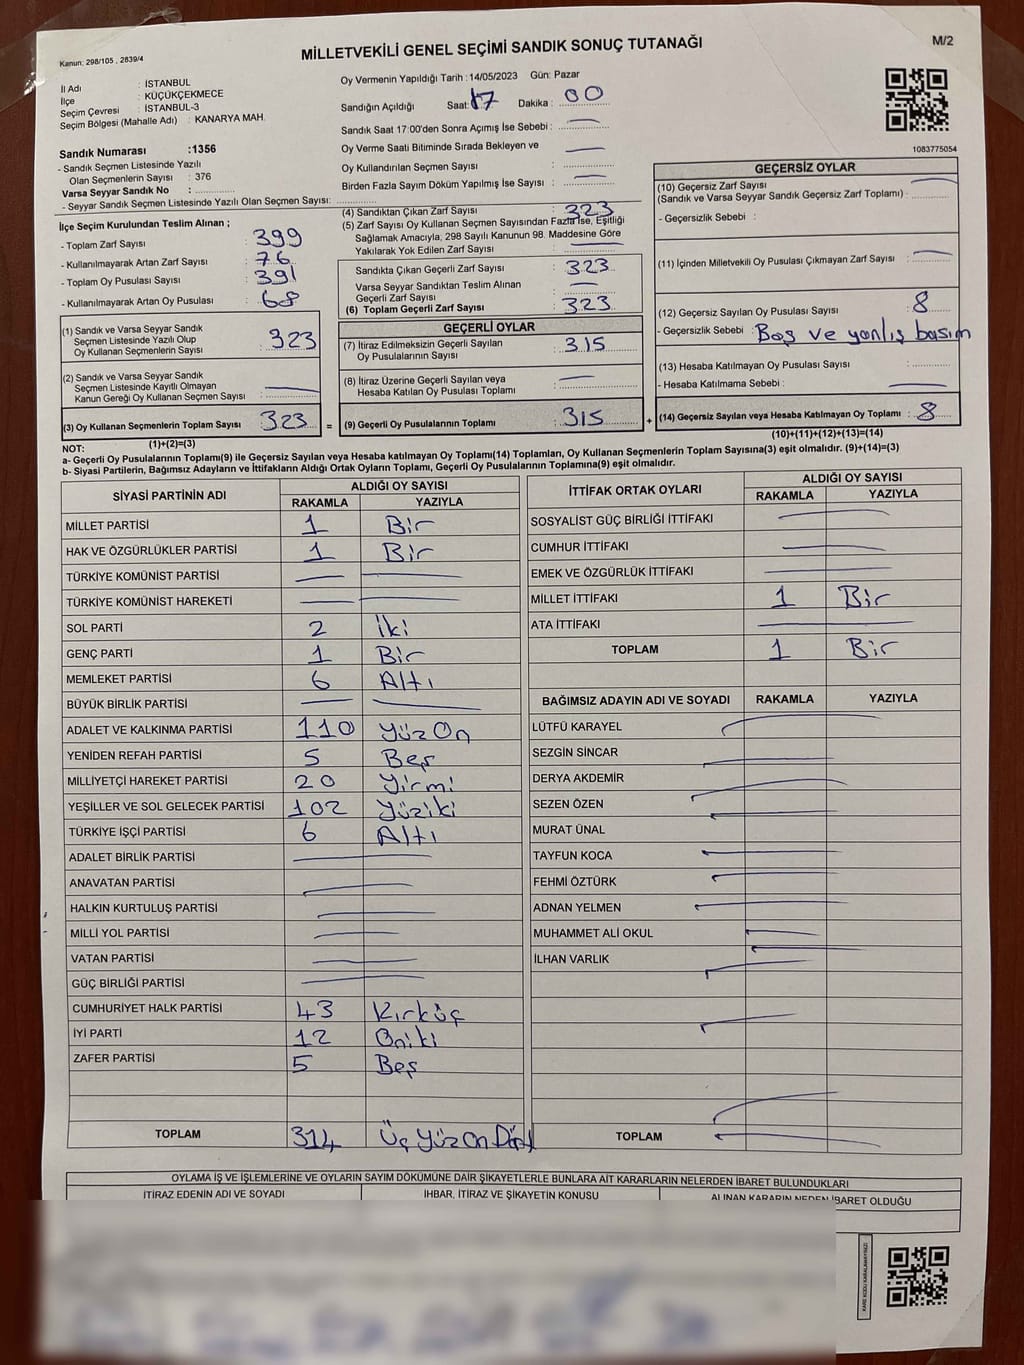 Kanun: 298/105 , 2839/4
MİLLETVEKİLİ GENEL SEÇİMİ SANDIK SONUÇ TUTANAĞI
M/2
İl Adı : İSTANBUL
İlçe : KÜÇÜKÇEKMECE
Seçim Çevresi : İSTANBUL-3
Seçim Bölgesi (Mahalle Adı) : KANARYA MAH.
Oy Vermenin Yapıldığı Tarih : 14/05/2023 Gün: Pazar
Sandığın Açıldığı Saat: 17 Dakika : 00
Sandık Saat 17:00'den Sonra Açımış İse Sebebi :
Oy Verme Saati Bitiminde Sırada Bekleyen ve
Oy Kullandırılan Seçmen Sayısı :
Birden Fazla Sayım Döküm Yapılmış İse Sayısı :
1083775054
Sandık Numarası :1356
- Sandık Seçmen Listesinde Yazılı
Olan Seçmenlerin Sayısı : 376
Varsa Seyyar Sandık No :
- Seyyar Sandık Seçmen Listesinde Yazılı Olan Seçmen Sayısı:
İlçe Seçim Kurulundan Teslim Alınan ;
- Toplam Zarf Sayısı : 399
- Kullanılmayarak Artan Zarf Sayısı : 76
- Toplam Oy Pusulası Sayısı : 391
- Kullanılmayarak Artan Oy Pusulası : 68
(1) Sandık ve Varsa Seyyar Sandık
Seçmen Listesinde Yazılı Olup
Oy Kullanan Seçmenlerin Sayısı : 323
(2) Sandık ve Varsa Seyyar Sandık
Seçmen Listesinde Kayıtlı Olmayan
Kanun Gereği Oy Kullanan Seçmen Sayısı :
(3) Oy Kullanan Seçmenlerin Toplam Sayısı : 323 =
(1)+(2)=(3)
(4) Sandıktan Çıkan Zarf Sayısı : 323
(5) Zarf Sayısı Oy Kullanan Seçmen Sayısından Fazla İse, Eşitliği
Sağlamak Amacıyla, 298 Sayılı Kanunun 98. Maddesine Göre
Yakılarak Yok Edilen Zarf Sayısı :
Sandıkta Çıkan Geçerli Zarf Sayısı : 323
Varsa Seyyar Sandıktan Teslim Alınan
Geçerli Zarf Sayısı :
(6) Toplam Geçerli Zarf Sayısı : 323
GEÇERLİ OYLAR
(7) İtiraz Edilmeksizin Geçerli Sayılan
Oy Pusulalarının Sayısı : 315
(8) İtiraz Üzerine Geçerli Sayılan veya
Hesaba Katılan Oy Pusulası Toplamı :
(9) Geçerli Oy Pusulalarının Toplamı : 315 +
GEÇERSİZ OYLAR
(10) Geçersiz Zarf Sayısı
(Sandık ve Varsa Seyyar Sandık Geçersiz Zarf Toplamı) :
- Geçersizlik Sebebi :
(11) İçinden Milletvekili Oy Pusulası Çıkmayan Zarf Sayısı :
(12) Geçersiz Sayılan Oy Pusulası Sayısı : 8
- Geçersizlik Sebebi : Boş ve yanlış basım
(13) Hesaba Katılmayan Oy Pusulası Sayısı :
- Hesaba Katılmama Sebebi :
(14) Geçersiz Sayılan veya Hesaba Katılmayan Oy Toplamı : 8
(10)+(11)+(12)+(13)=(14)
NOT:
a- Geçerli Oy Pusulalarının Toplamı(9) ile Geçersiz Sayılan veya Hesaba katılmayan Oy Toplamı(14) Toplamları, Oy Kullanan Seçmenlerin Toplam Sayısına(3) eşit olmalıdır. (9)+(14)=(3)
b- Siyasi Partilerin, Bağımsız Adayların ve İttifakların Aldığı Ortak Oyların Toplamı, Geçerli Oy Pusulalarının Toplamına(9) eşit olmalıdır.
SİYASİ PARTİNİN ADI ALDIĞI OY SAYISI
RAKAMLA YAZIYLA
MİLLET PARTİSİ 1 Bir
HAK VE ÖZGÜRLÜKLER PARTİSİ 1 Bir
TÜRKİYE KOMÜNİST PARTİSİ
TÜRKİYE KOMÜNİST HAREKETİ
SOL PARTİ 2 İki
GENÇ PARTİ 1 Bir
MEMLEKET PARTİSİ 6 Altı
BÜYÜK BİRLİK PARTİSİ
ADALET VE KALKINMA PARTİSİ 110 YüzOn
YENİDEN REFAH PARTİSİ 5 Beş
MİLLİYETÇİ HAREKET PARTİSİ 20 Yirmi
YEŞİLLER VE SOL GELECEK PARTİSİ 102 Yüziki
TÜRKİYE İŞÇİ PARTİSİ 6 Altı
ADALET BİRLİK PARTİSİ
ANAVATAN PARTİSİ
HALKIN KURTULUŞ PARTİSİ
MİLLİ YOL PARTİSİ
VATAN PARTİSİ
GÜÇ BİRLİĞİ PARTİSİ
CUMHURİYET HALK PARTİSİ 43 Kırküç
İYİ PARTİ 12 Oniki
ZAFER PARTİSİ 5 Beş
TOPLAM 314 Üç Yüz On Dört
İTTİFAK ORTAK OYLARI ALDIĞI OY SAYISI
RAKAMLA YAZIYLA
SOSYALİST GÜÇ BİRLİĞİ İTTİFAKI
CUMHUR İTTİFAKI
EMEK VE ÖZGÜRLÜK İTTİFAKI
MİLLET İTTİFAKI 1 Bir
ATA İTTİFAKI
TOPLAM 1 Bir
BAĞIMSIZ ADAYIN ADI VE SOYADI RAKAMLA YAZIYLA
LÜTFÜ KARAYEL
SEZGİN SİNCAR
DERYA AKDEMİR
SEZEN ÖZEN
MURAT ÜNAL
TAYFUN KOCA
FEHMİ ÖZTÜRK
ADNAN YELMEN
MUHAMMET ALİ OKUL
İLHAN VARLIK
TOPLAM
OYLAMA İŞ VE İŞLEMLERİNE VE OYLARIN SAYIM DÖKÜMÜNE DAİR ŞİKAYETLERLE BUNLARA AİT KARARLARIN NELERDEN İBARET BULUNDUKLARI
İTİRAZ EDENİN ADI VE SOYADI İHBAR, İTİRAZ VE ŞİKAYETİN KONUSU ALINAN KARARIN NEDEN İBARET OLDUĞU